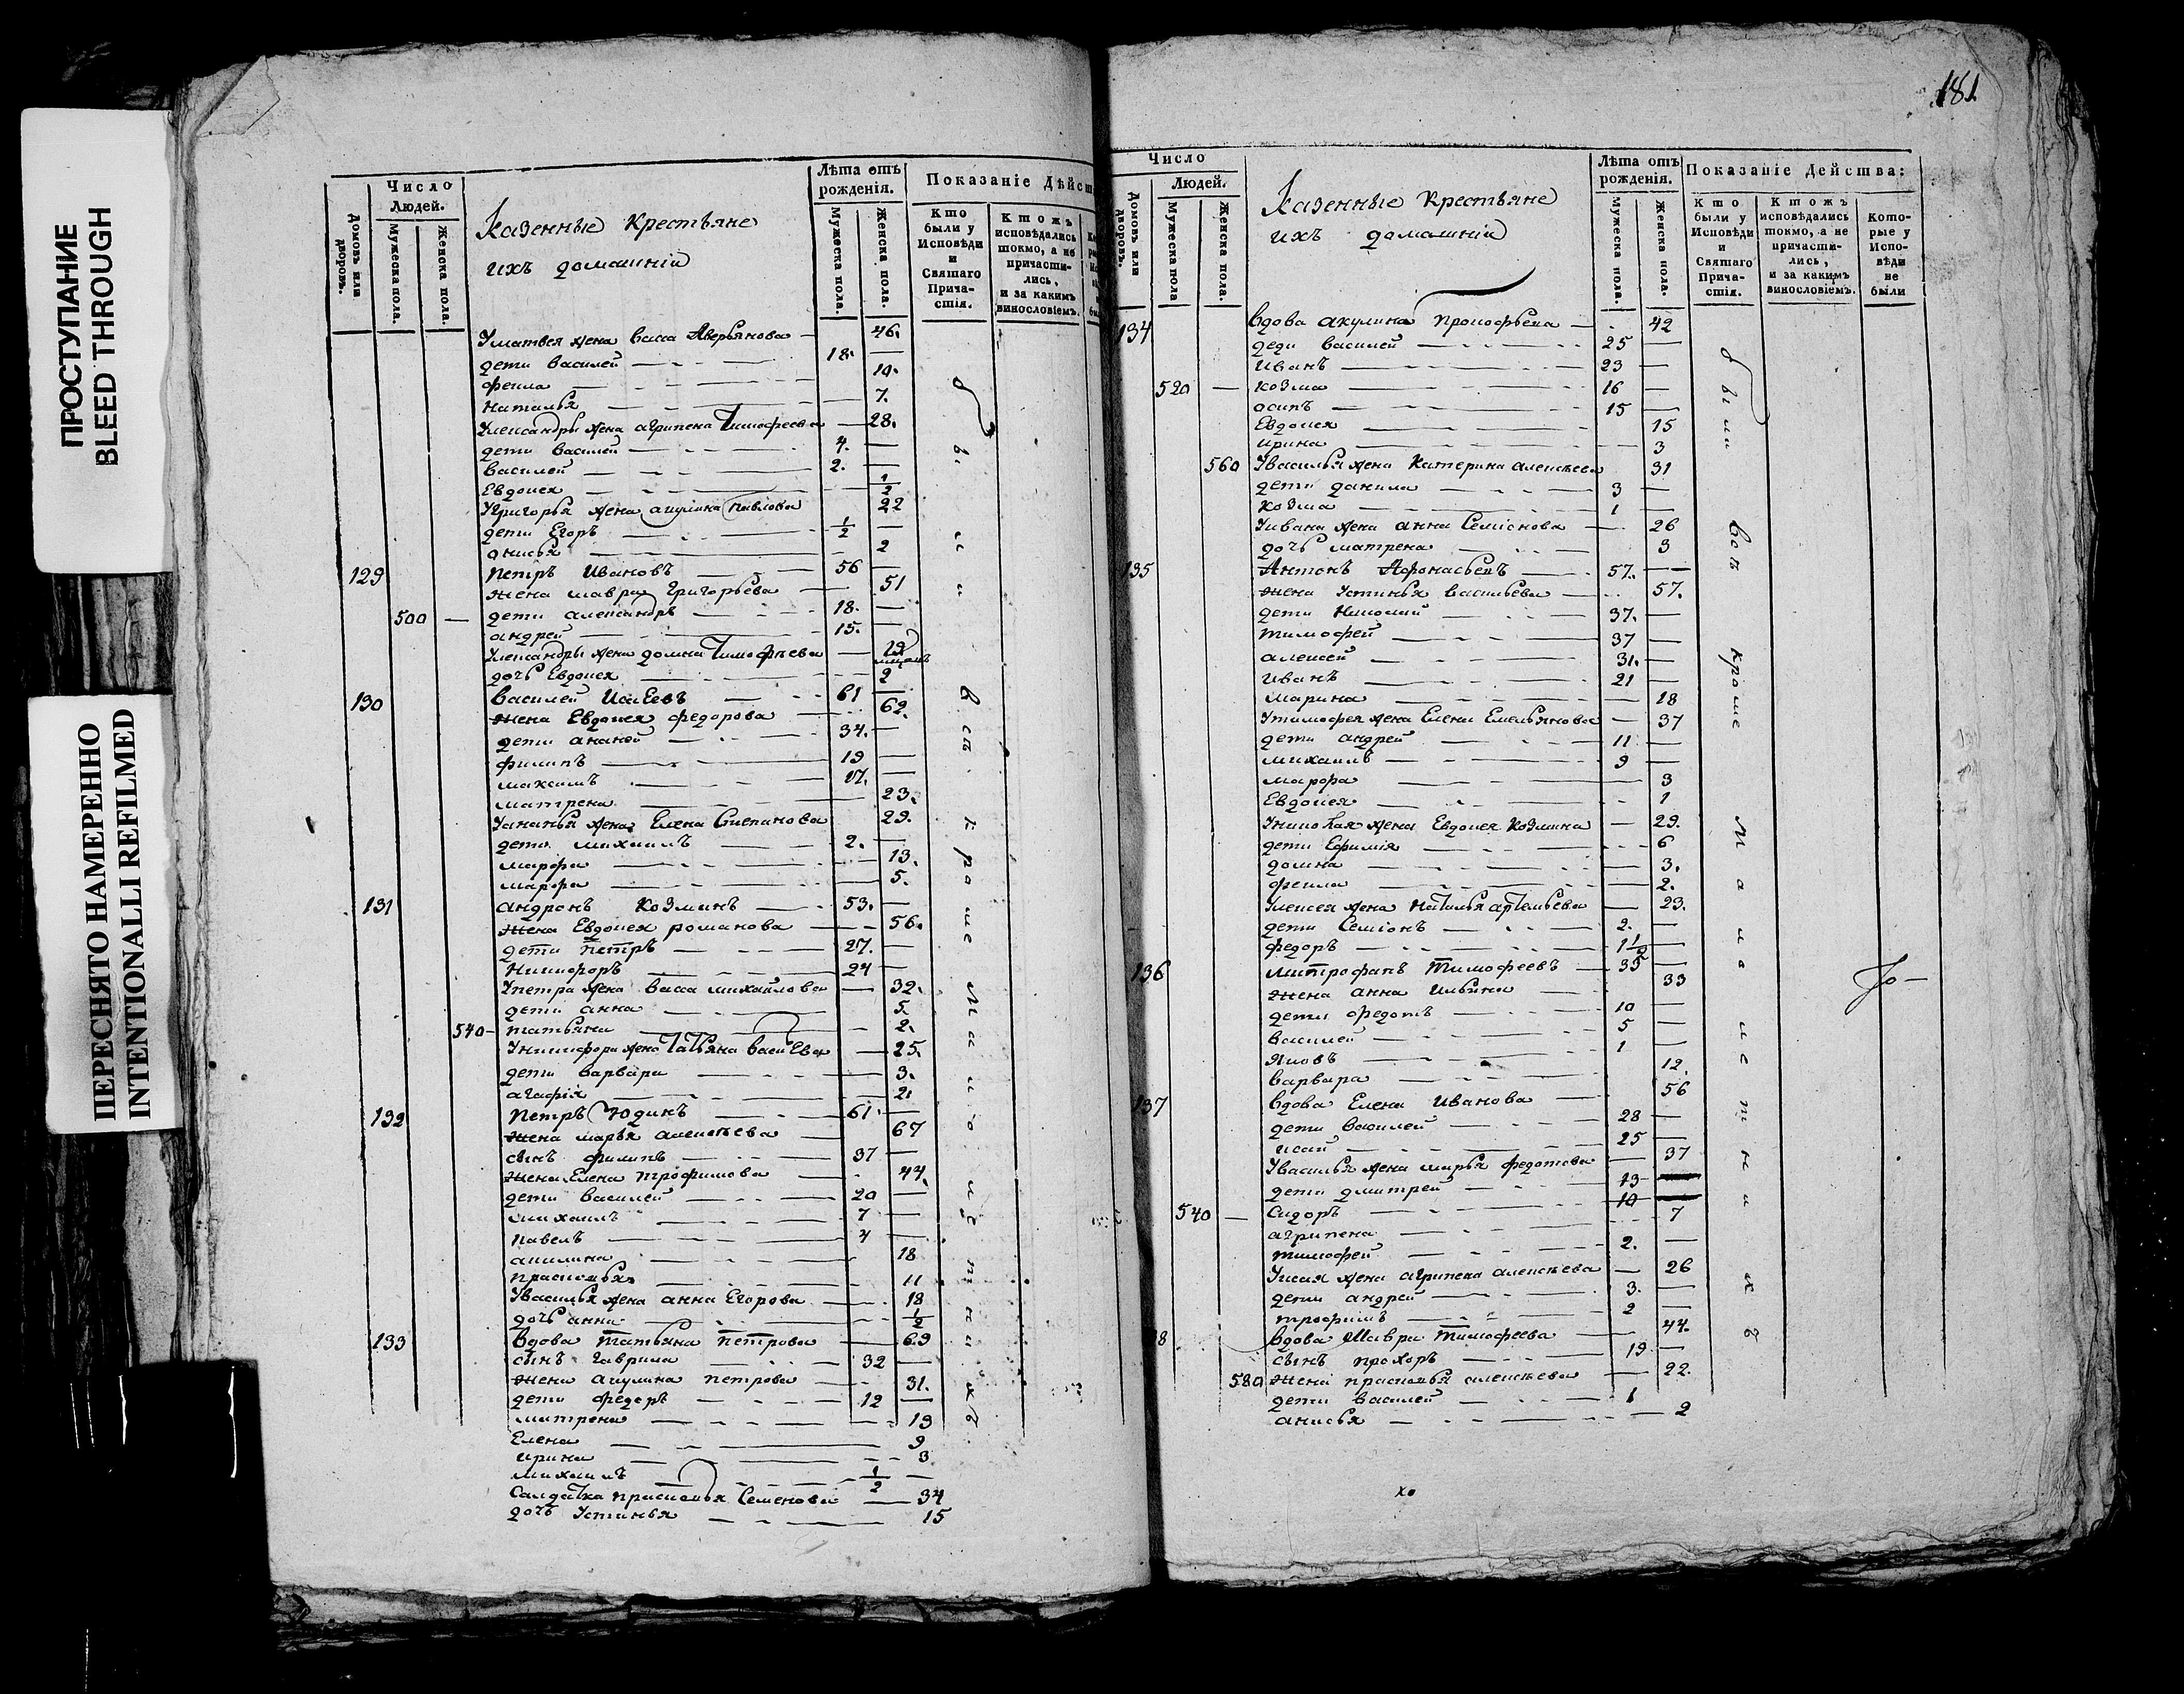 ПРОСТУПАНИЕ
BLEED THROUGH
ПЕРЕСНЯТО НАМЕРЕННО
INTENTIONALLI REFILMED
Число
Людей.
Домовъ или дворовъ.
Мужеска пола.
Женска пола.
Казенные крестьяне
ихъ домашніи
Лѣта отъ рожденія.
Мужеска пола.
Женска пола.
Показаніе Дѣйс
Кто были у Исповѣди и Святаго Причастія.
Ктожъ исповѣдались токмо, а не причастились, и за какимъ винословіемъ.
Уматвея жена васса Аверьянова — 46.
дети василей 18. —
фекла 10.
наталья — 7.
Улександры жена агрипена Тимофеева — 28.
дети василей 4. —
василей 2. —
Евдокея 1/2
Угригорья жена акулина павлова 22
дети Егоръ 1/2 —
анисья — 2
129 петръ Ивановъ 56 —
жена мавра Григорьева — 51
500 — дети александръ 18. —
андрей 15. —
Улександры жена домна Тимофѣева — 19
дочь Евдокея 2
130 василей Исаевъ 61 —
жена Евдокея федорова 62.
дети ананей 34. —
филипъ 19 —
максимъ 17. —
матрена 23.
Уананья жена Елена Степанова 29.
дети михаилъ 2. —
марфа 13.
марфа — 5.
131 андронъ Козминъ 53. —
жена Евдокея романова 56.
дети петръ 27. —
Никифоръ 24 —
Упетра жена васса михайлова — 32.
дети анна 5.
540 — татьяна 2.
Уникифора жена Татьяна васиЕва — 25.
дети варвара — 3.
агафія — 2.
132 петръ Юдинъ 61. —
жена марья алексѣева 67
сынъ филипъ 37 —
жена Елена трофимова 44.
дети василей 20 —
михаилъ 7 —
павелъ 4 —
акилина 18
прасковья 11
Увасилья жена анна Егорова 18
дочь анна 1/2
133 вдова татьяна петрова 69
сынъ гаврила 32 —
жена акулина петрова 31.
дети федоръ 12 —
матрена 13
Елена 9
ирина 3
михаилъ 1/2 —
Салдатка прасковья Семенова — 34
дочь Устинья 15
были все кроме малолетнихъ
181.
Число
Людей.
Домовъ или дворовъ.
Мужеска пола
Женска пола.
Казенные крестьяне
ихъ домашніи
Лѣта отъ рожденія.
Мужеска пола.
Женска пола.
Показаніе Действа:
Кто были у Исповѣди и Святаго Причастія.
Ктожъ исповѣдались токмо, а не причастились, и за какимъ винословіемъ.
Которые у Исповѣди не были
134 вдова акулина прокофьева 42
дети василей 25 —
Иванъ 23 —
520 — козма 16 —
осипъ 15 —
Евдокея 15
ирина 3
560 Увасилья жена Катерина алексѣева 31
дети данила 3 —
козма 1 —
Уивана жена анна Семіонова 26
дочь матрена 3
135 Антонъ Афонасьевъ 57. —
жена Устинья васильева 57.
дети Николай 37. —
тимофей 37 —
алексей 31. —
Иванъ 21 —
марина 18
Утимофея жена Елена Емельянова — 37
дети андрей 11 —
михаилъ 9 —
марфа 3
Евдокея 1
Униколая жена Евдокея козмина — 29.
дети Ефимія 6
домна 3.
фекла 2.
Улексея жена Наталья артемьева — 23.
дети Семіонъ 2. —
федоръ 1 1/2 —
136 митрофанъ тимофеевъ 35
жена анна Ильина 33
дети федотъ 10 —
василей 5 —
яковъ 1 —
варвара 12.
137 вдова Елена Иванова 56
дети василей 28 —
исай 25 —
Увасилья жена марья федотова 37
дети дмитрей 13
540 — Сидоръ 10
агрипена 7
тимофей 2. —
Уисая жена агрипена алексѣева — 26
дети андрей 3. —
трофимъ 2 —
8 вдова Мавра тимофеева 44.
сынъ прохоръ 19 —
580 жена прасковья алексѣева 22.
дети василей 1
анисья 2
были все кроме малолетнихъ